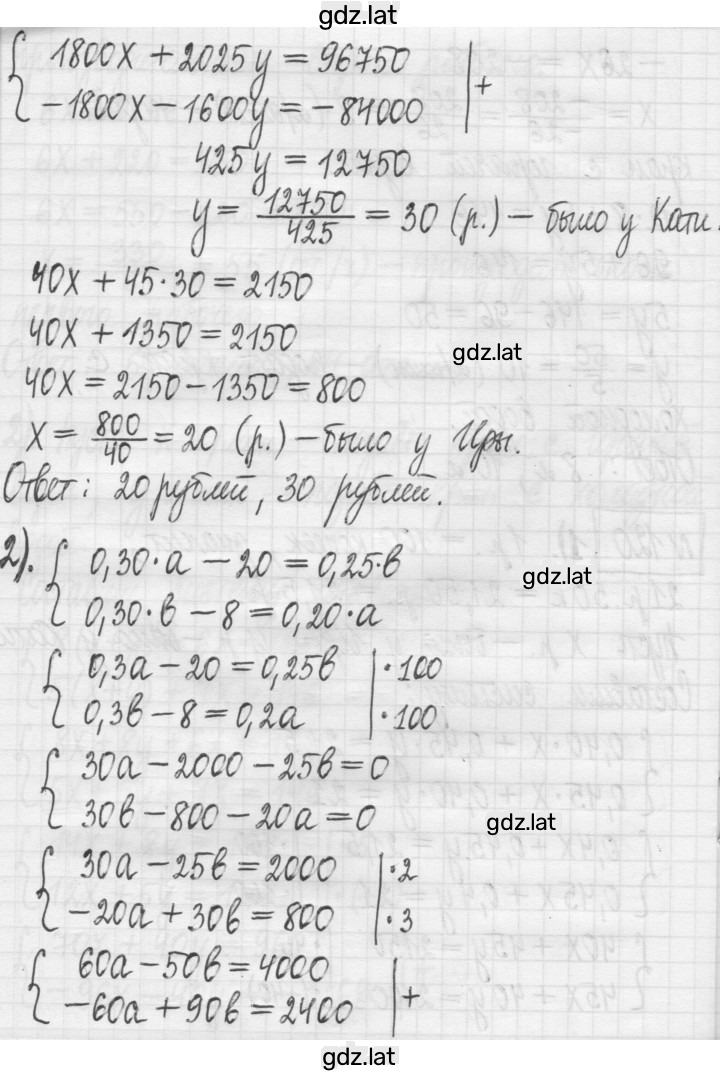 gdz.lat
{ 1800x + 2025y = 96750 | +
-1800x - 1600y = -84000
425y = 12750
y = 12750/425 = 30 (р.) - было у Кати.
40x + 45·30 = 2150
40x + 1350 = 2150
gdz.lat
40x = 2150 - 1350 = 800
x = 800/40 = 20 (р.) - было у Иры.
Ответ: 20 рублей, 30 рублей.
2). { 0,30·a - 20 = 0,25·b
gdz.lat
0,30·b - 8 = 0,20·a
{ 0,3a - 20 = 0,25b | ·100
0,3b - 8 = 0,2a | ·100
{ 30a - 2000 - 25b = 0
30b - 800 - 20a = 0
gdz.lat
{ 30a - 25b = 2000 | ·2
-20a + 30b = 800 | ·3
{ 60a - 50b = 4000 | +
-60a + 90b = 2400
gdz.lat